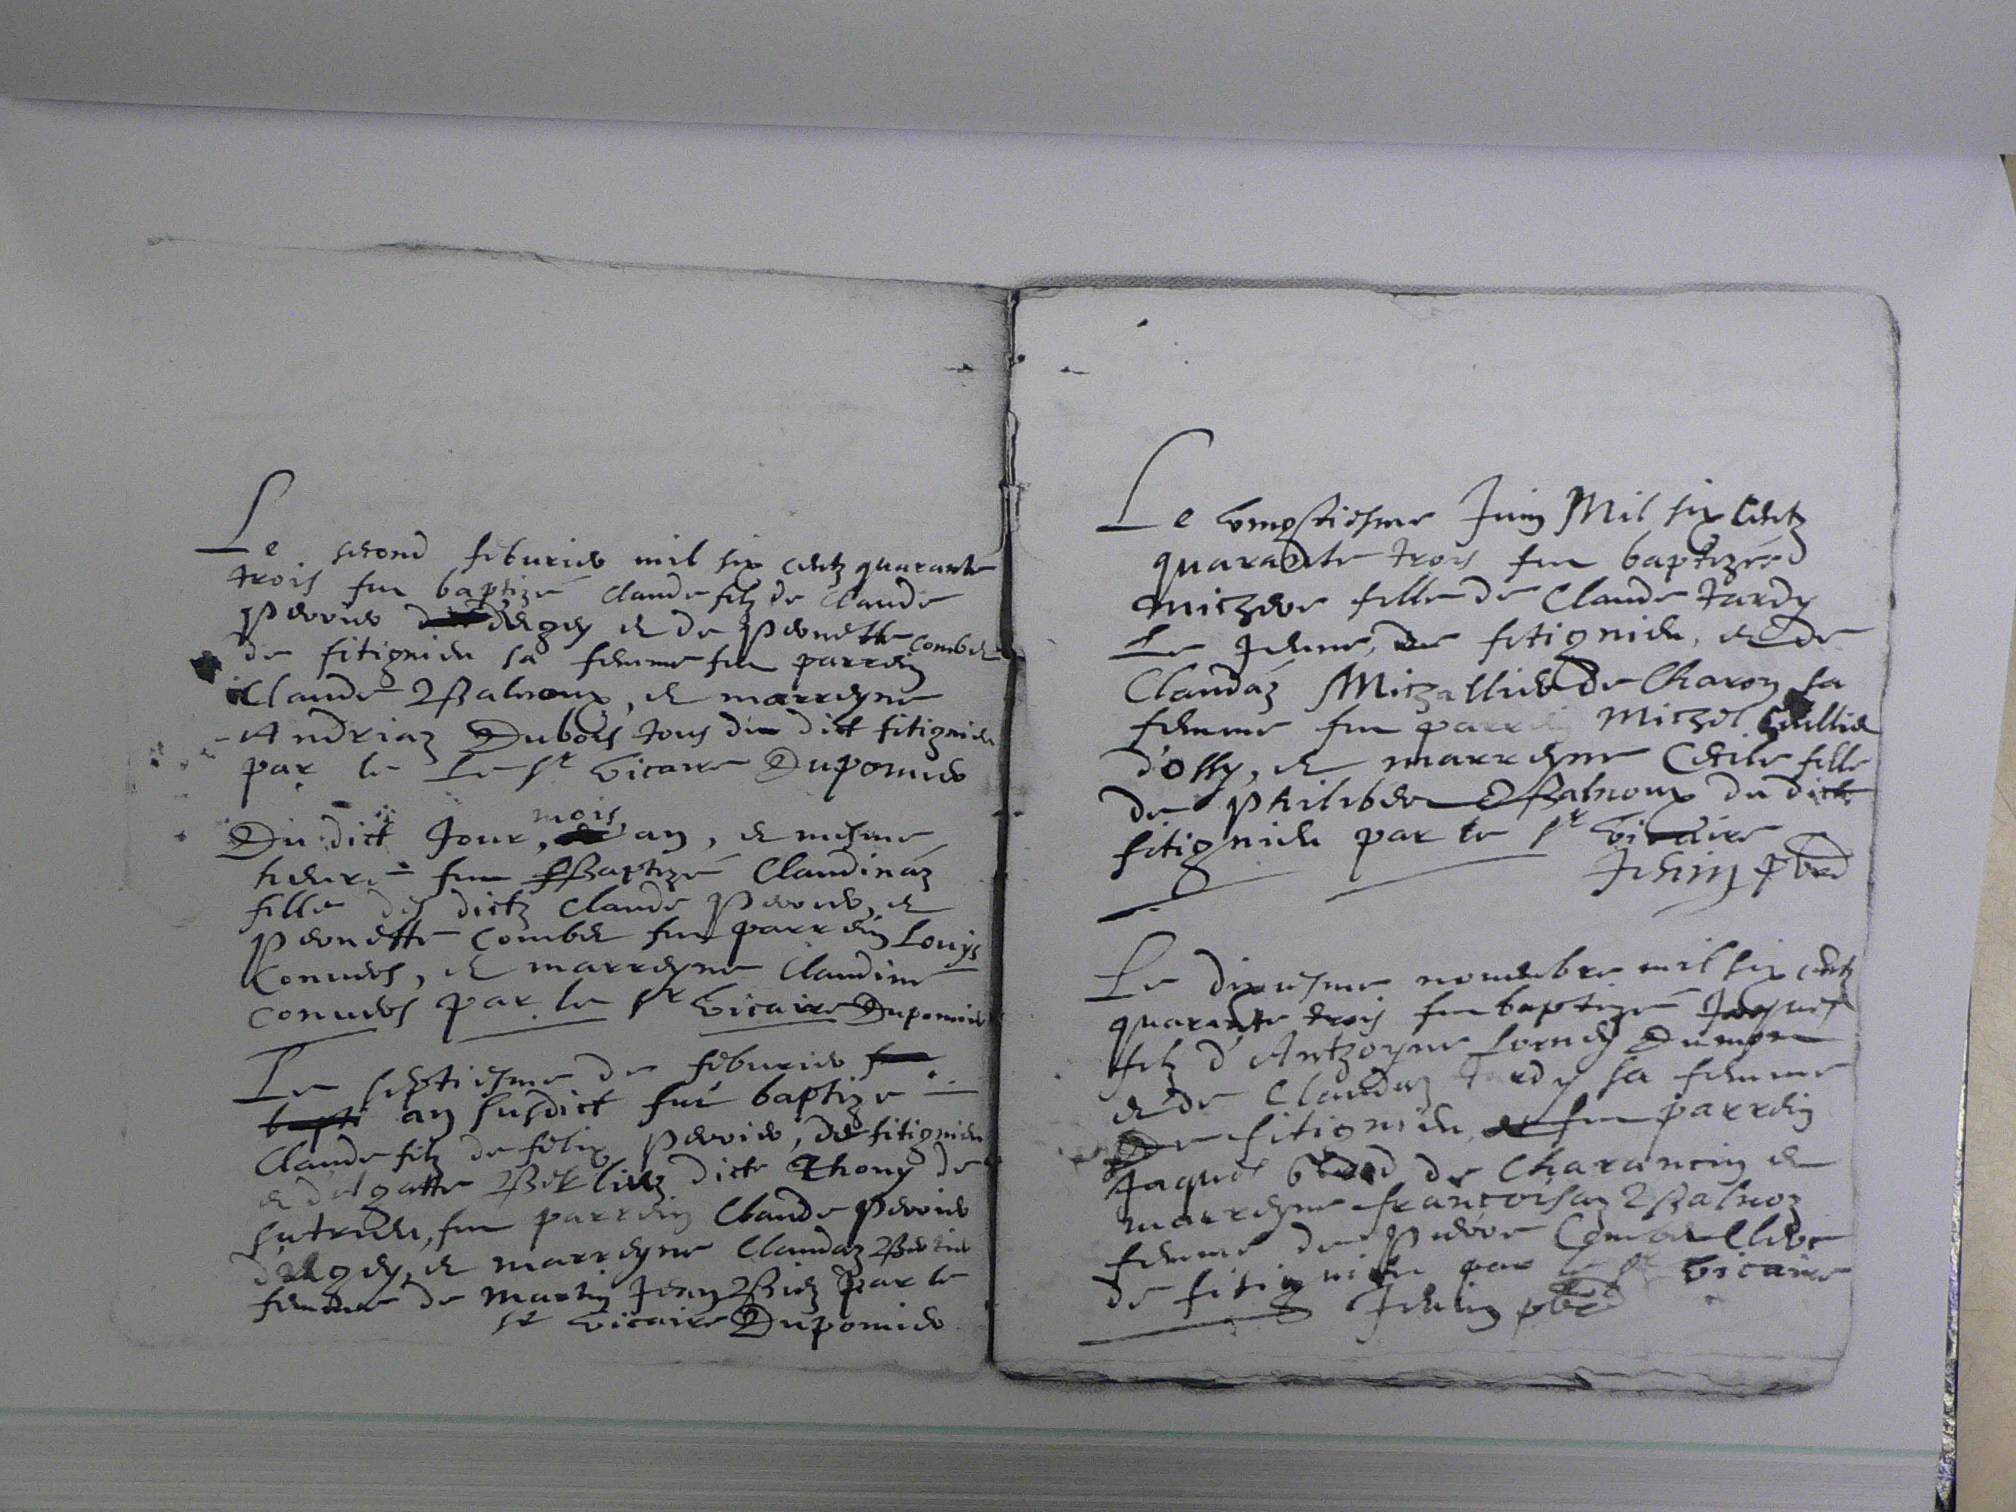 Le second feburier mil six centz quarante
trois fut baptizé Claude filz de Claude
Perrier d'Argey et de Pernette Combet
de fitignieu sa femme fut parrein
Claude Balnoux, et marreyne
Andriaz Dubois tous du dict fitignieu
par le Le sr vicaire Duponied
Du dict Jour, mois, an, et mesme
heure fut Baptizé Claudinaz
fille des dictz Claude Perrier, et
Pernette Combet fut parrein Louys
Convers, et marreyne Claudine
Convers par le sr vicaire Duponied
Le septiesme de feburier fut
bapti an susdict fut baptize
Claude filz de felix Perrier, de fitignieu
et d'Agatte dicte Thony de
Sutrieu, fut parrein Claude Perrier
d'Argey, et marreyne Claudaz
femme de Martin Jean par le
sr vicaire Duponied
Le vingtiesme Juin Mil six Centz
quarante trois fut baptizée
Michere fille de Claude Tardy
Le Jeune, de fitignieu, et de
Claudaz Michallier de Charon sa
femme fut parrein Michel
d'ossy, et marreyne Cecile fille
de Philibert Balnoux du dict
fitignieu par le sr vicaire
Jenin pbre
Le dixiesme novembre mil six centz
quarante trois fut baptizé Jaques
filz d'Anthoyne
et de Claudaz Tardy sa femme
De fitignieu, et fut parrein
Jaques de Charancin et
marreyne françoisaz Balnoz
femme de Pierre
de fitignieu par le sr vicaire
Jenin pbre